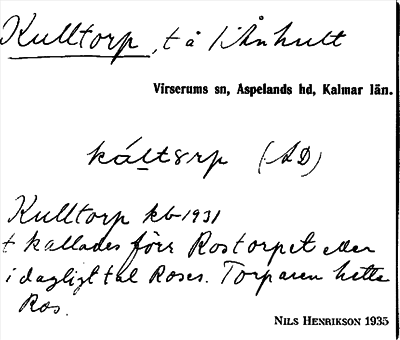 Kulltorp, t å l:a Ånhult
Virserums sn, Aspelands hd, Kalmar län.
(AD)
Kulltorp kb 1931
t kallades förr Rostorpet eller
i dagligt tal Roses. Torparen hette
Ros.
NILS HENRIKSON 1935